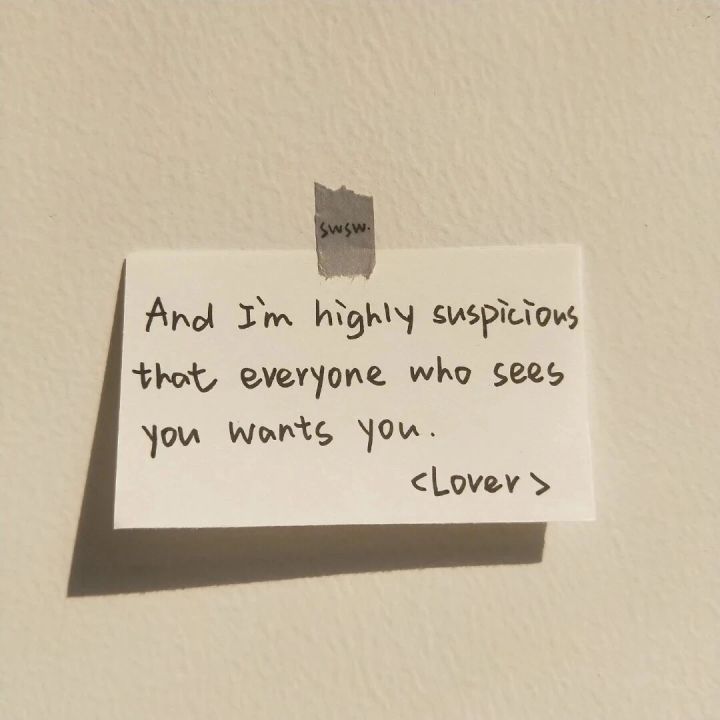 swsw.
And I'm highly suspicious
that everyone who sees
you wants you.
<Lover>